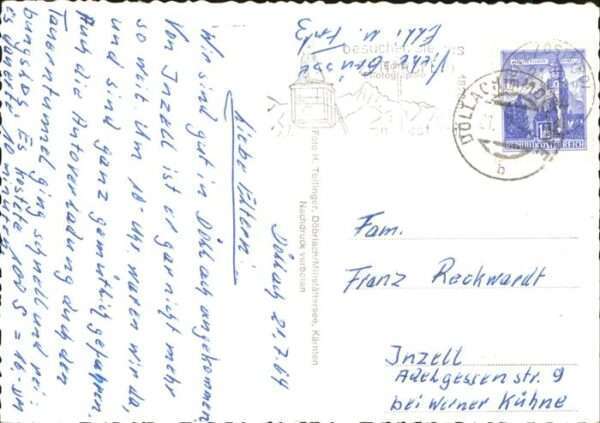 Döllach 21.7.64
Liebe Eltern!
Wir sind gut in Döllach angekommen
Von Inzell ist es gar nicht mehr
so weit. Um 10 Uhr waren wir da,
und sind ganz gemütlich gefahren.
Auch die Autoverladung durch den
Tauerntunnel ging schnell und rei-
bungslos. Es kostete 102 S = 16 DM
es dauerte 10 Minuten
Viele Grüsse
Elli u. Fritz
besuchen Sie
DÖLLACH
b
REPUBLIK ÖSTERREICH
Foto H. Tollinger, Döbriach/Millstättersee, Kärnten
Nachdruck verboten
Fam.
Franz Reckwardt
Inzell
Adelgessenstr. 9
bei Werner Kühne